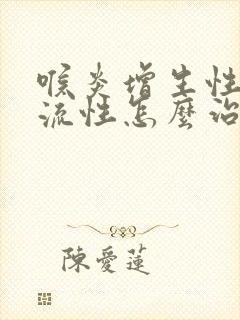 喉炎增生性
流性怎麼治
陳愛蓮